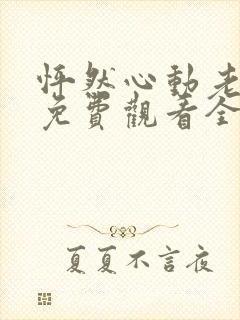 怦然心動老
免費觀看全
夏夏不言夜